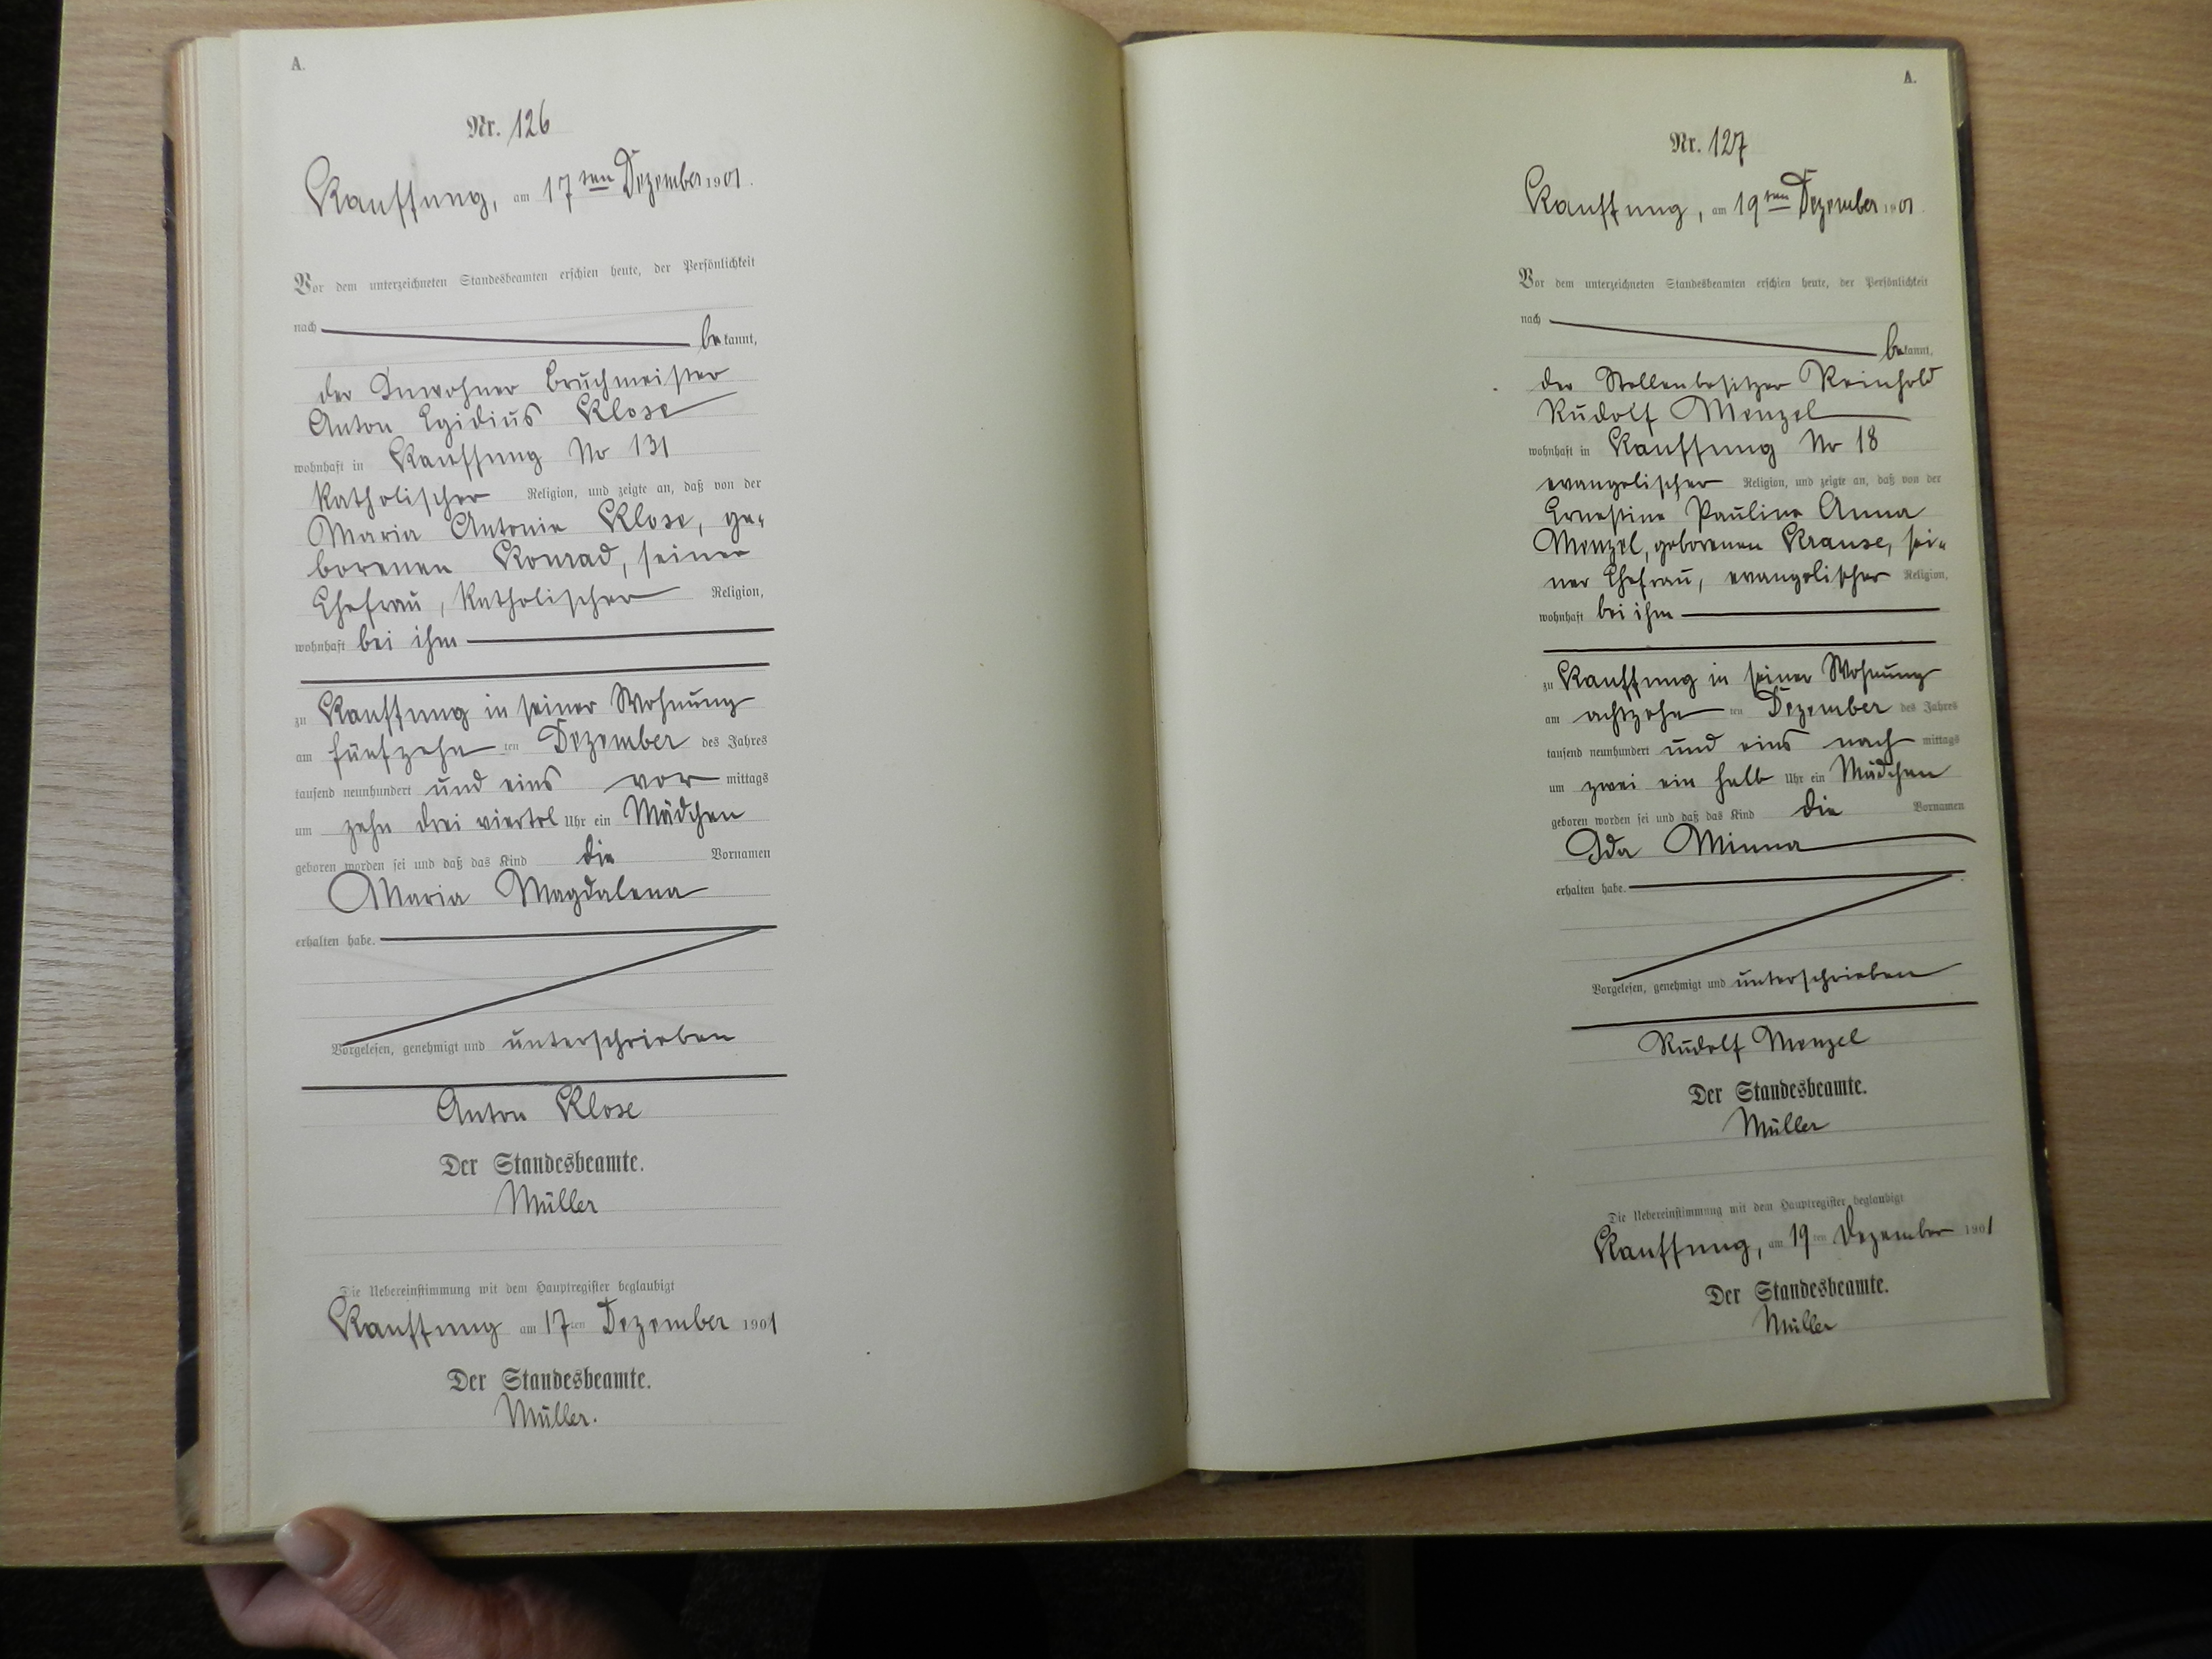 A.
Nr. 126
Kauffung, am 17ten Dezember 1901.
Vor dem unterzeichneten Standesbeamten erschien heute, der Persönlichkeit
nach
bekannt,
der Inwohner Bruchmeister
Anton Egidius Klose
wohnhaft in Kauffung No 131
katholischer Religion, und zeigte an, daß von der
Maria Antonie Klose, ge-
borenen Konrad, seiner
Ehefrau, katholischer Religion,
wohnhaft bei ihm
zu Kauffung in seiner Wohnung
am fünfzehnten Dezember des Jahres
tausend neunhundert und eins vormittags
um zehn drei viertel Uhr ein Mädchen
geboren worden sei und daß das Kind die Vornamen
Maria Magdalena
erhalten habe.
Vorgelesen, genehmigt und unterschrieben
Anton Klose
Der Standesbeamte.
Müller
Die Uebereinstimmung mit dem Hauptregister beglaubigt
Kauffung am 17ten Dezember 1901
Der Standesbeamte.
Müller.
A.
Nr. 127
Kauffung, am 19ten Dezember 1901.
Vor dem unterzeichneten Standesbeamten erschien heute, der Persönlichkeit
nach
bekannt,
der Stellenbesitzer Reinhold
Rudolf Menzel
wohnhaft in Kauffung No 18
evangelischer Religion, und zeigte an, daß von der
Ernestine Pauline Anna
Menzel, geborenen Krause, sei-
ner Ehefrau, evangelischer Religion,
wohnhaft bei ihm
zu Kauffung in seiner Wohnung
am achtzehnten Dezember des Jahres
tausend neunhundert und eins nachmittags
um zwei ein halb Uhr ein Mädchen
geboren worden sei und daß das Kind die Vornamen
Ida Minna
erhalten habe.
Vorgelesen, genehmigt und unterschrieben
Rudolf Menzel
Der Standesbeamte.
Müller
Die Uebereinstimmung mit dem Hauptregister beglaubigt
Kauffung, am 19ten Dezember 1901
Der Standesbeamte.
Müller